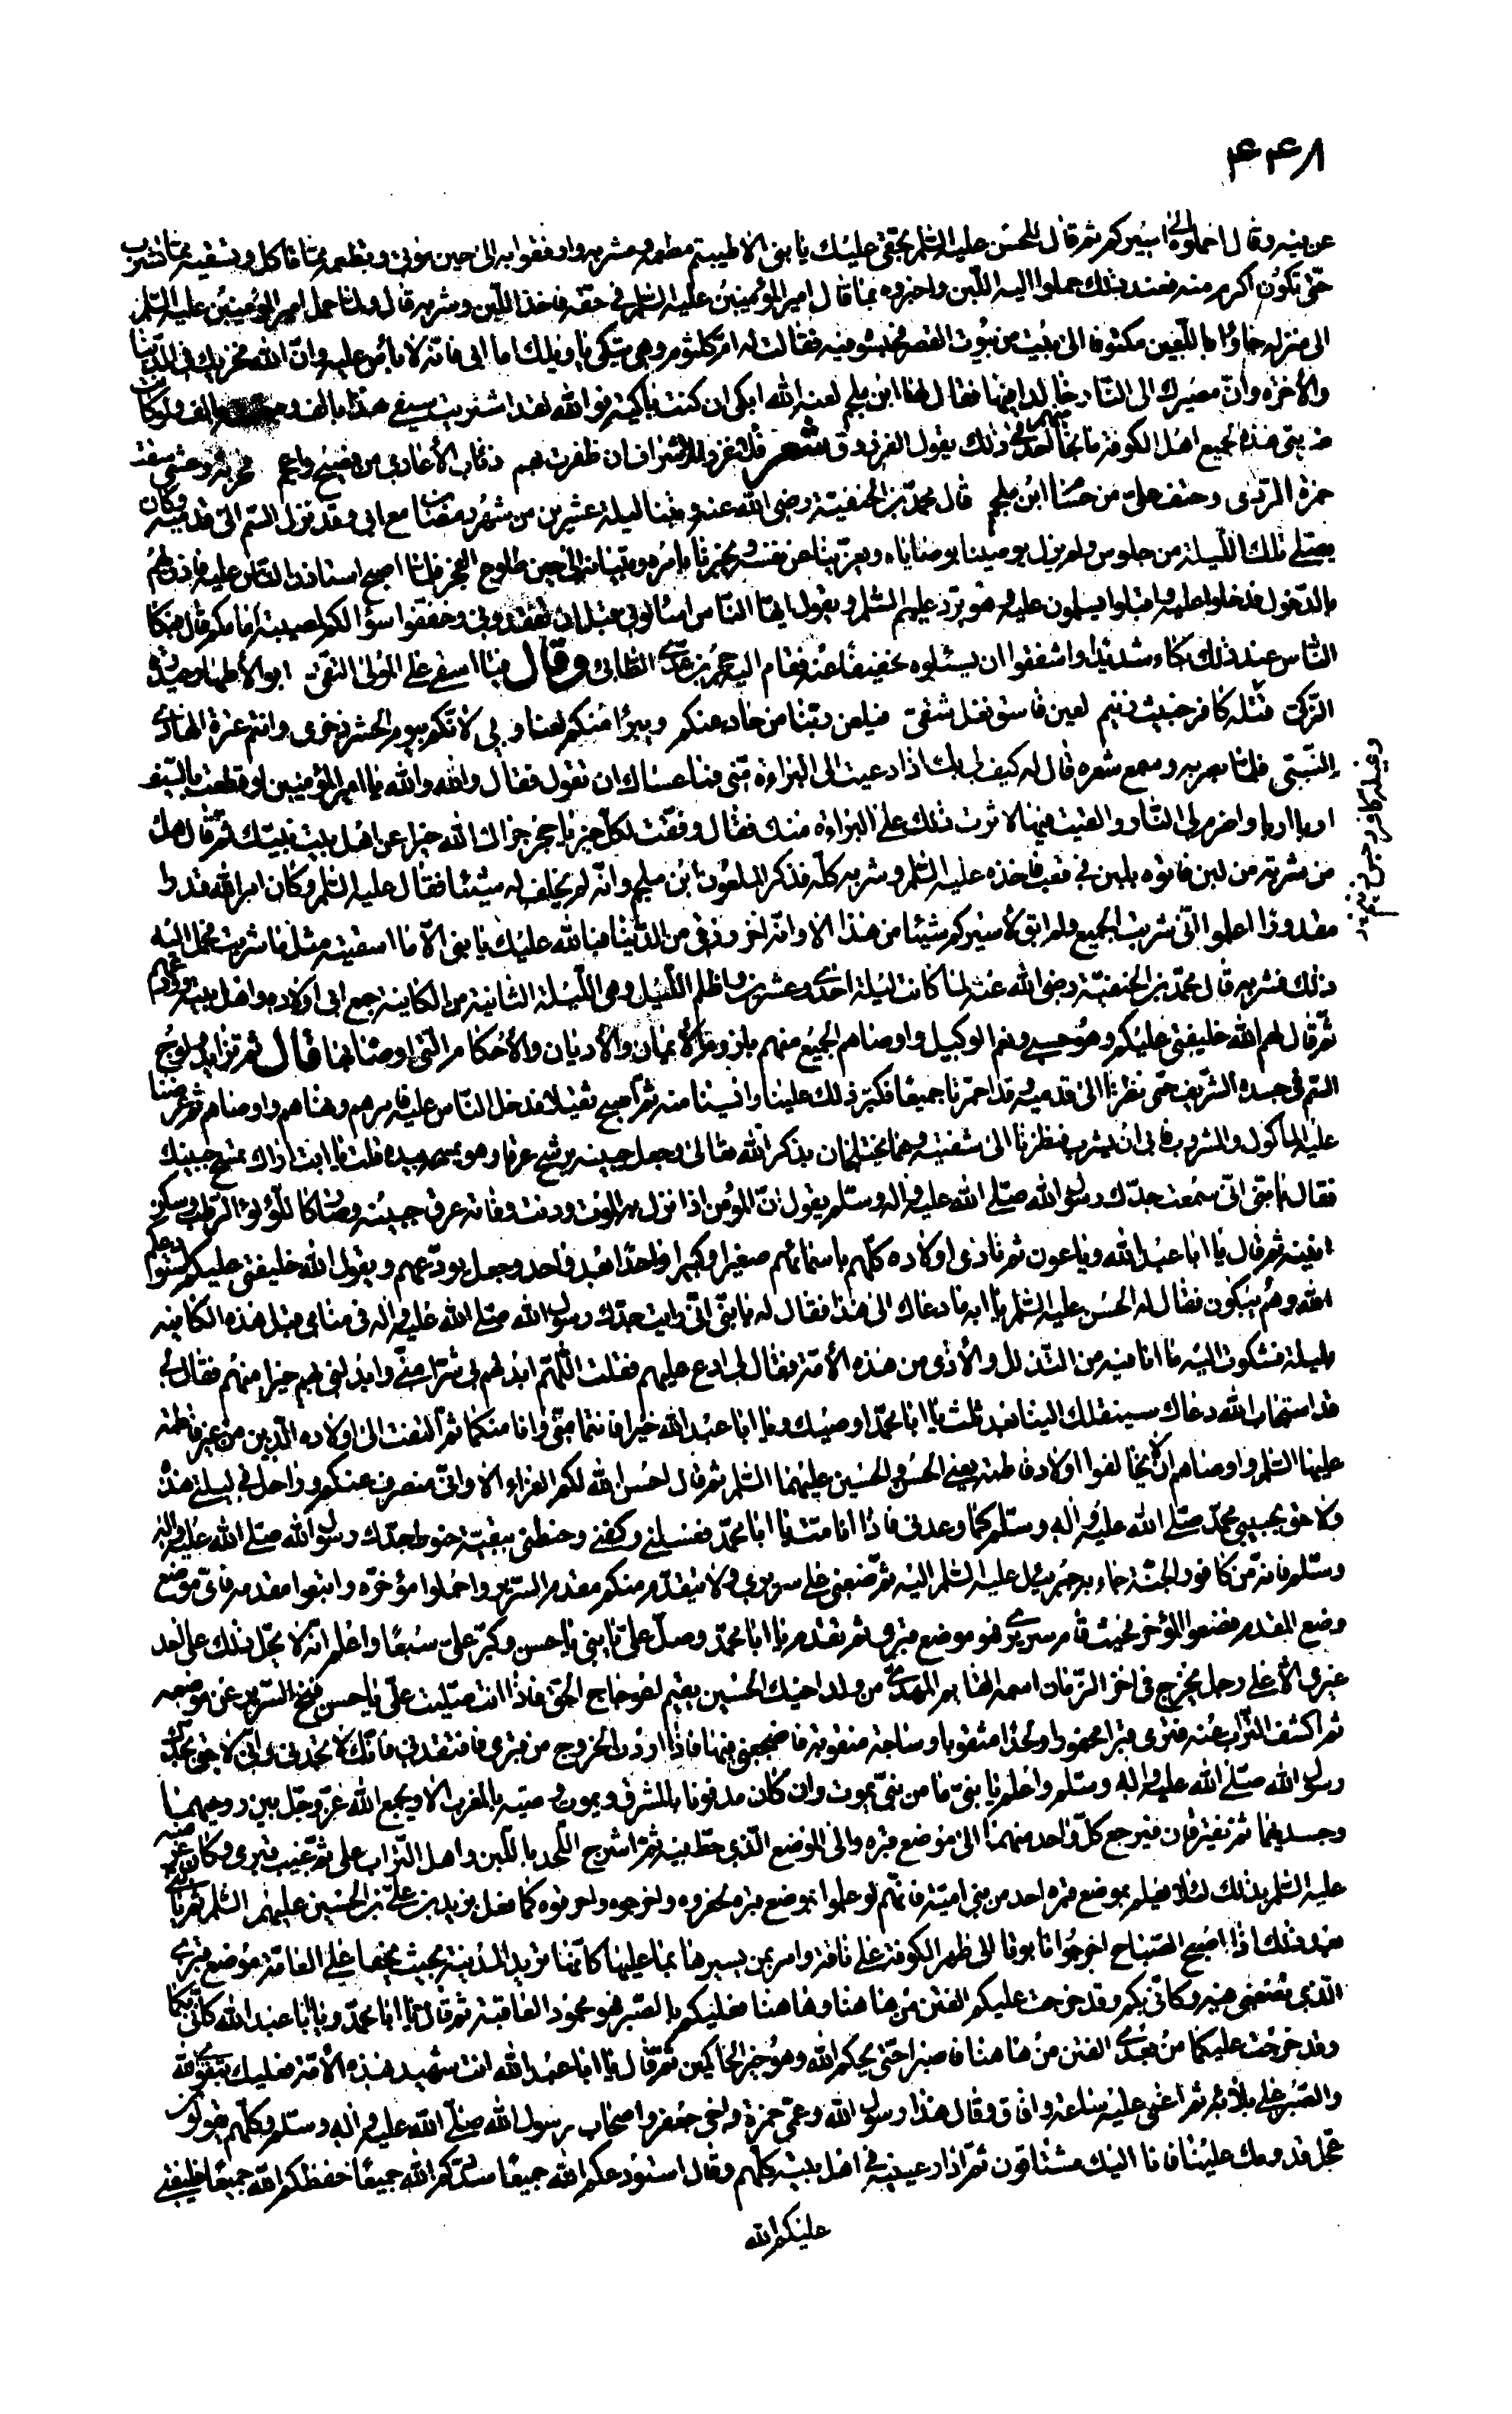 ۴۴۸
عن فيه وقال احملوه الى اسيركم ثم قال للحسن عليه السلم بحقى عليك يا بنى الا طيبتم مطعمه ومشربه وارفقوا به الى حين موتى وتطعمه مما تاكل وتسقيه مما تشرب
حتى تكون اكرم منه فعند ذلك حملوا اليه اللبن واخبروه بما قال امير المؤمنين عليه السلم فى حقه فاخذ اللبن وشربه قال ولما حمل امير المؤمنين عليه السلم
الى منزله جاؤا باللعين مكتوفا الى بيت من بيوت القصر فحبسوه فيه فقالت له ام كلثوم وهى تبكى يا ويلك اما ابى فانه لا باس عليه وان الله مخزيك فى الدنيا
والأخرة وان مصيرك الى النار خالدا فيها فقال لها ابن ملجم لعنه الله ابكى ان كنت باكية فوالله لقد اشتريت سيفى هذا بالف و بالف ولو كانت
ضربتى هذه لجميع اهل الكوفة ما نجا منهم احد وفى ذلك يقول الفرزدق شعر فلا غرو للاشراف ان ظفرت بهم ذئاب الأعادى من فصيح واعجم فحربة وحشى سقت
حمزة الردى وحتف على من حسام ابن ملجم قال محمد بن الحنفية رضى الله عنه وبتنا ليلة عشرين من شهر رمضان مع ابى وقد نزل السم الى قدميه وكان
يصلى تلك الليلة من جلوس ولم يزل يوصينا بوصاياه ويعزينا عن نفسه ويخبرنا بامره وتبيانه الى حين طلوع الفجر فلما اصبح استاذن الناس عليه فاذن لهم
بالدخول فدخلوا عليه واقبلوا يسلمون عليه وهو يرد عليهم السلم ويقول ايها الناس اسألونى قبل ان تفقدونى وخففوا سؤالكم لمصيبة امامكم قال فبكا
الناس عند ذلك بكاء شديدا واشفقوا ان يسئلوه تخفيفا عنه فقام اليه حجر بن عدى الطائى وقال فيا اسفى على المولى التقى ابو الأطهار حيدرة
الزكى قتله كافر حنيث زنيم لعين فاسق نغل شقى فيلعن ربنا من حاد عنكم ويبرأ منكم لعنا وبى لانكم بيوم الحشر ذخرى وانتم عترة الهادى
النبى فلما بصر به وسمع شعره قال له كيف لى بك اذا دعيت الى البراءة منى فما عساك ان تقول فقال والله والله يا امير المؤمنين لو قطعت بالسيف
اربا اربا واضرم لى النار والقيت فيها لاثرت ذلك على البراءة منك فقال وفقت لكل خير يا حجر جزاك الله خيرا عن اهل بيت نبيك ثم قال هل
من شربة من لبن فاتوه بلبن فى قعب فاخذه عليه السلم وشربه كله فذكر الملعون ابن ملجم وانه لم يخلف له شيئا فقال عليه السلم وكان امر الله قدرا
مقدورا اعلموا انى شربت الجميع ولم ابق لأسيركم شيئا من هذا الا وانه اخر رزقى من الدنيا فبالله عليك يا بنى الا ما اسقيته مثل ما شربت فحمل اليه
ذلك فشربه قال محمد بن الحنفية رضى الله عنه لما كانت ليلة احدى وعشرين واظلم الليل وهى الليلة الثانية من الكاينة جمع ابى اولاده واهل بيته وودعهم
ثم قال لهم الله خليفتى عليكم وهو حسبى ونعم الوكيل واوصاهم الجميع منهم بلزوم الأيمان والأديان والأحكام التى اوصاه بها قال ثم تزايد ولوج
السم فى جسده الشريف حتى نظرنا الى قدميه وقد احمرتا جميعا فكبر ذلك علينا وايسنا منه ثم اصبح ثقيلا فدخل الناس عليه فامرهم ونهاهم واوصاهم ثم عرضنا
عليه المأكول والمشروب فابى ان يشرب فنظرنا الى شفتيه وهما يختلجان بذكر الله تعالى وجعل جبينه يرشح عرقا وهو يمسحه بيده قلت يا ابت اراك تمسح جبينك
فقال يا بنى انى سمعت جدك رسول الله صلى الله عليه واله وسلم يقول ان المؤمن اذا نزل به الموت ودنت وفاته عرق جبينه وصار كاللؤلؤ الرطب وسكن
انينه ثم قال يا ابا عبد الله ويا عون ثم نادى اولاده كلهم باسمائهم صغيرا وكبيرا واحدا بعد واحد وجعل يودعهم ويقول الله خليفتى عليكم استودعكم
الله وهم يبكون فقال له الحسن عليه السلم يا ابه ما دعاك الى هذا فقال له يا بنى انى رايت جدك رسول الله صلى الله عليه واله فى منامى قبل هذه الكاينه
بليلة فشكوت اليه ما انا فيه من التذلل والأذى من هذه الأمة فقال لى ادع عليهم فقلت اللهم ابدلهم بى شرا منى وابدلنى بهم خيرا منهم فقال لى
قد استجاب الله دعاك سينقلك الينا بعد ثلث يا ابا محمد اوصيك ويا ابا عبد الله خيرا فانتما منى وانا منكما ثم التفت الى اولاده الذين من غير فاطمة
عليها السلم واوصاهم ان لا يخالفوا اولاد فاطمة يعنى الحسن والحسين عليهما السلم ثم قال احسن الله لكم العزاء الا وانى منصرف عنكم وراحل فى ليلتى هذه
ولاحق بحبيبى محمد صلى الله عليه واله وسلم كما وعدنى فاذا انا مت يا ابا محمد فغسلنى وكفنى وحنطنى ببقية حنوط جدك رسول الله صلى الله عليه واله
وسلم فانه من كافور الجنة جاء به جبرئيل عليه السلم اليه ثم ضعنى على سريرى ولا يتقدم منكم مقدم السرير واحملوا مؤخره واتبعوا مقدمه فاى موضع
وضع المقدم فضعوا المؤخر فحيث قام سريرى فهو موضع قبرى ثم تقدم يا ابا محمد وصل على يا بنى يا حسن وكبر على سبعا واعلم انه لا يحل ذلك على احد
غيرى الا على رجل يخرج فى اخر الزمان اسمه القايم المهدى من ولد اخيك الحسين يقيم اعوجاج الحق فاذا انت صليت على يا حسن فنح السرير عن موضعه
ثم اكشف التراب عنه فترى قبرا محفورا ولحدا مثقوبا وساجة منقوبة فاضجعنى فيها فاذا اردت الخروج من قبرى فافتقدنى فانك لا تجدنى وانى لاحق بجدك
رسول الله صلى الله عليه واله وسلم واعلم يا بنى ما من نبى يموت وان كان مدفونا بالمشرق ويموت وصيه بالمغرب الا ويجمع الله عز وجل بين روحيهما
وجسديهما ثم يفترقان فيرجع كل واحد منهما الى موضع قبره والى الموضع الذى حط فيه ثم اشرج اللحد باللبن واهل التراب على ثم غيب قبرى وكان غرضه
عليه السلم بذلك لئلا يعلم بموضع قبره احد من بنى امية فانهم لو علموا بموضع قبره لحفروه واخرجوه واحرقوه كما فعل بزيد بن على بن الحسين عليهم السلم ثم يا بنى
بعد ذلك اذا اصبح الصباح اخرجوا تابوتا الى ظهر الكوفة على ناقة وامر بمن يسيرها بما عليها كانها تريد المدينة بحيث يخفى على العامة موضع قبرى
الذى تضعنى فيه وكانى بكم وقد خرجت عليكم الفتن من هاهنا وهاهنا فعليكم بالصبر فهو محمود العاقبة ثم قال يا ابا محمد ويا ابا عبد الله كانى بكما
وقد خرجت عليكما من بعدى الفتن من هاهنا فاصبرا حتى يحكم الله وهو خير الحاكمين ثم قال يا ابا عبد الله انت شهيد هذه الأمة فعليك بتقوى الله
والصبر على بلائه ثم اغمى عليه ساعة وافاق وقال هذا رسول الله وعمى حمزة واخى جعفر واصحاب رسول الله صلى الله عليه واله وسلم وكلهم يقولون
عجل قدومك علينا فانا اليك مشتاقون ثم ادار عينيه فى اهل بيته كلهم وقال استودعكم الله جميعا سددكم الله جميعا حفظكم الله جميعا خليفتى
عليكم الله